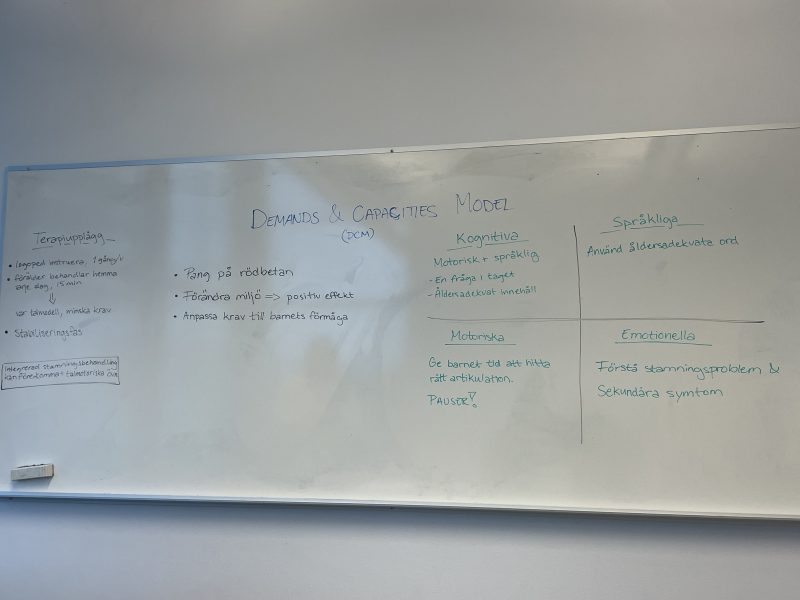 DEMANDS & CAPACITIES MODEL
(DCM)
Terapiupplägg
• Logoped instruera, 1 gång/v
• Förälder behandlar hemma
varje dag, 15 min
⇓
var talmodell, minska krav
• Stabiliseringsfas
Integrerad stamningsbehandling
kan förekomma + talmotoriska övn
• Pang på rödbetan
• Förändra miljö => positiv effekt
• Anpassa krav till barnets förmåga
Kognitiva
Motorisk + språklig
- En fråga i taget
- Åldersadekvat innehåll
Språkliga
Använd åldersadekvata ord
Motoriska
Ge barnet tid att hitta
rätt artikulation.
PAUSER!
Emotionella
Förstå stamningsproblem &
Sekundära symtom